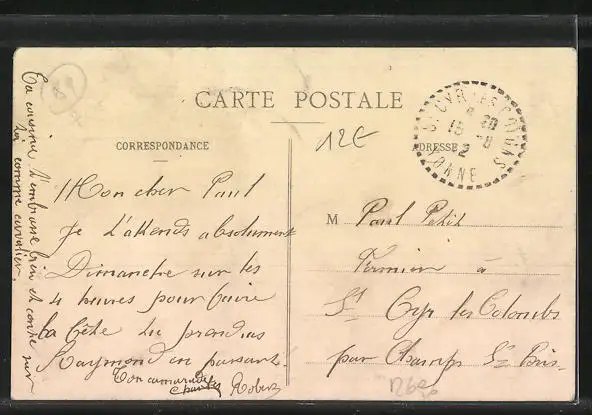 CARTE POSTALE
CORRESPONDANCE
ADRESSE
12€
Mon cher Paul
Je t'attends absolument
Dimanche sur les
4 heures pour faire
la fête tu prendras
Raymond en passant.
Ton camarade
Robert
Ta cousine t'embrasse bien et compte sur
toi comme cavalier.
M Paul Petit
Fermier à
St Cyr les Colombs
par Champs Yonne
ST CYR LES COLONS
YONNE